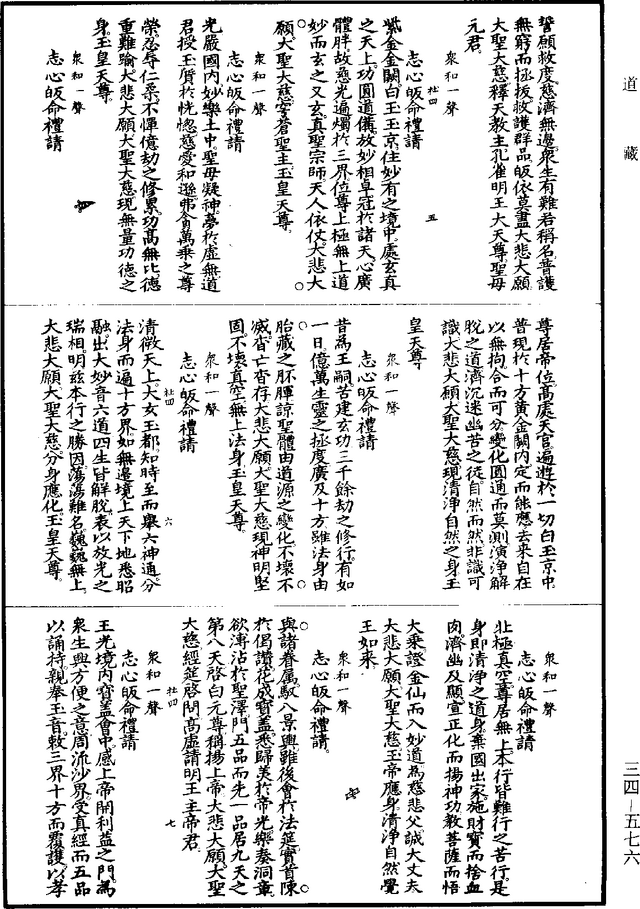 道藏
誓願救度慈濟無邊衆生有難若稱名普護
無窮而拯拔救護群品皈依莫盡大悲大願
大聖大慈釋天教主孔雀明王大天尊聖母
元君
衆和一聲
志心皈命禮請
杜四
五
紫金金闕白玉玉京住妙有之境中處玄真
之天上功圓道備放妙相卓冠於諸天心廣
體胖故慈光遍燭於三界位尊上極無上道
妙而玄之又玄真聖宗師天人依仗大悲大
願大聖大慈穹蒼聖主玉皇天尊
衆和一聲
志心皈命禮請
光嚴國內妙樂土中聖母凝神夢於虛無道
君授玉質於恍惚慈愛和遜弗貪萬乘之尊
榮忍辱仁柔不憚億劫之修累功高無比德
重難踰大悲大願大聖大慈現無量功德之
身玉皇天尊
衆和一聲
志心皈命禮請
尊居帝位高處天宮遍遊於一切白玉京中
普現於十方黃金闕內定而能應去來自在
以無拘合而可分變化圓通而莫測演淨解
脫之道濟沉迷幽苦之徒自然而然非識可
識大悲大願大聖大慈現清淨自然之身玉
皇天尊
衆和一聲
志心皈命禮請
昔為王嗣苦建玄功三千餘劫之修行有如
一日億萬生靈之拯度廣及十方雖法身由
胎藏之胚腪諒聖體由道源之變化不壞不
滅杳亡杳存大悲大願大聖大慈現神明堅
固不壞真空無上法身玉皇天尊
衆和一聲
志心皈命禮請
杜四
六
清微天上大女玉都知時至而舉六神通分
法身而遍十方界如無邊境上天下地悉昭
融出大妙音六道四生皆解脫表以放光之
瑞相明玆本行之勝因蕩蕩難名巍巍無上
大悲大願大聖大慈分身應化玉皇天尊
衆和一聲
志心皈命禮請
北極真空尊居無上本行皆難行之苦行是
身即清淨之道身棄國出家施財寶而捨血
肉濟幽及顯宣正化而揚神功教菩薩而悟
大乘證金仙而入妙道為慈悲父誠大丈夫
大悲大願大聖大慈玉帝應身清淨自然覺
王如來
衆和一聲
志心皈命禮請
與諸眷屬馭八景輿雖後會於法筵實首陳
於偈讚花成寶蓋悉歸美於帝光樂奏洞章
欲溥沾於聖澤門五品而先一品居九天之
第八天啓白元尊稱揚上帝大悲大願大聖
大慈經筵啓問高虛請明王主帝君
杜四
七
衆和一聲
志心皈命禮請
王光境內寶蓋會中感上帝開利益之門為
衆生興方便之意周流沙界受真經而五品
以誦持親奉玉音敕三界十方而覆護以孝
三四—五七六